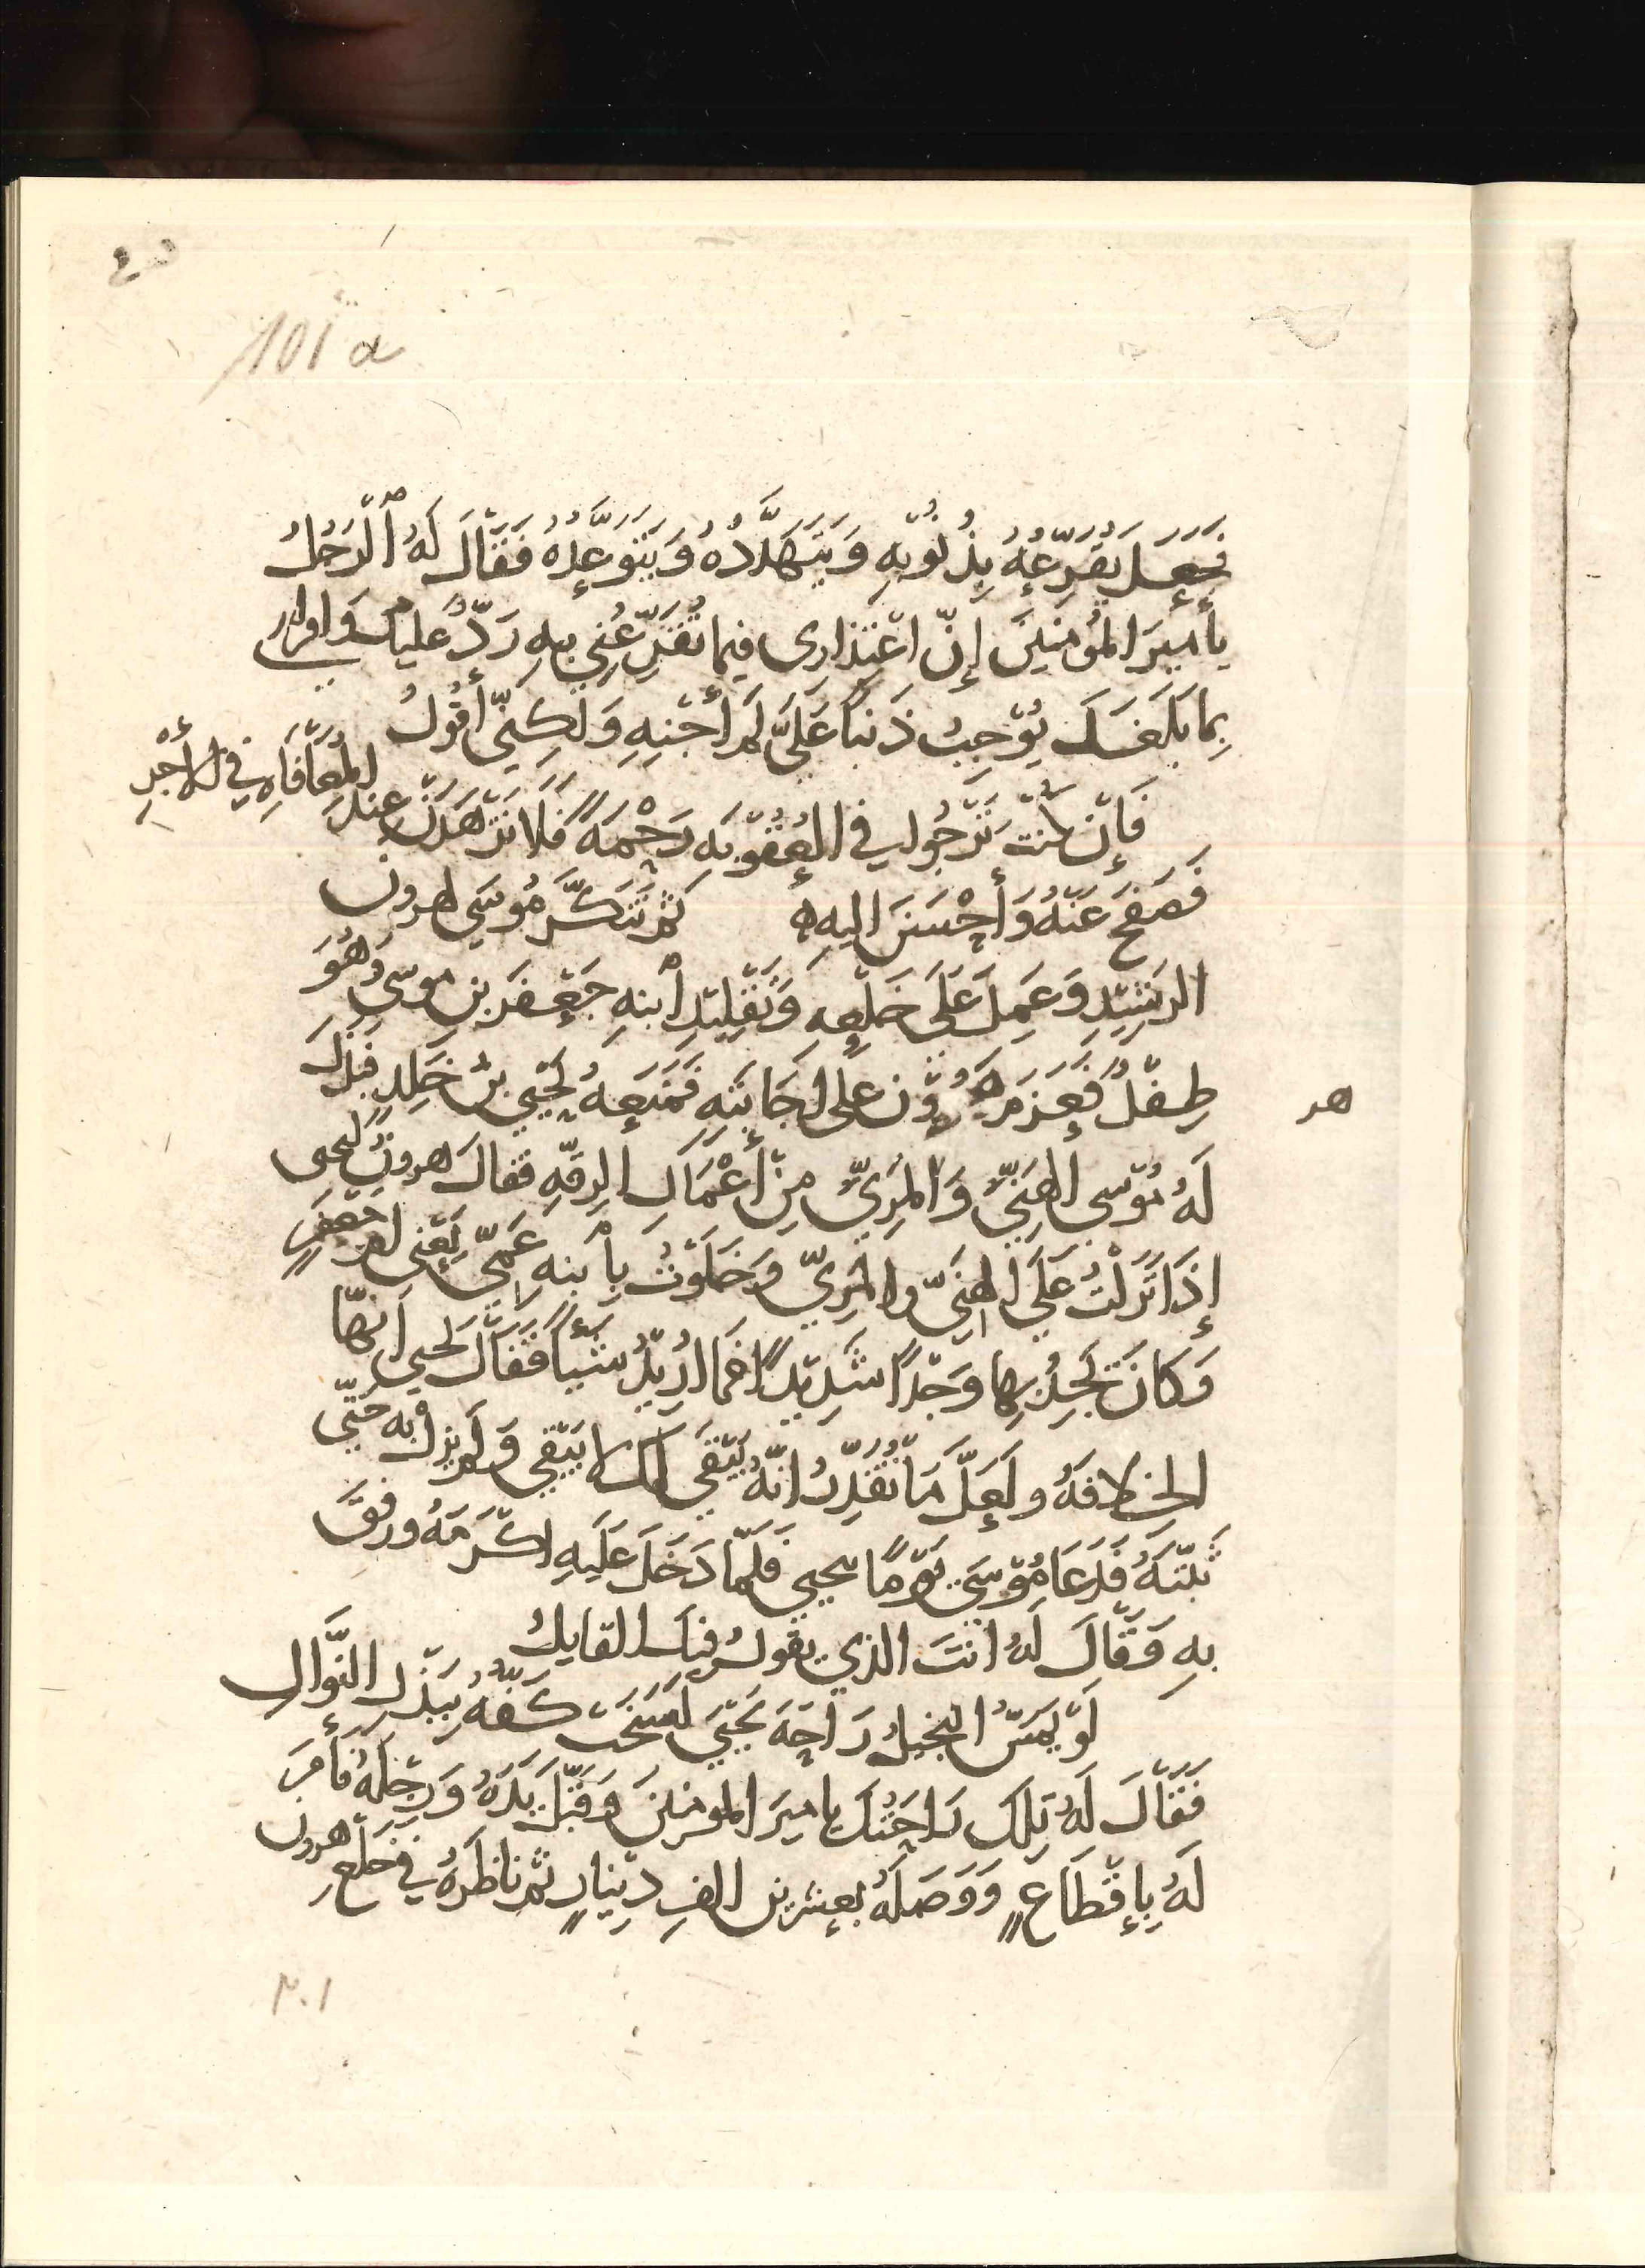 101 a
فَجَعَلَ يُقَرِّعُهُ بِذُنُوْبِهِ وَيَتَهَدَّدُهُ وَيَتَوَعَّدُهُ فَقَالَ لَهُ ٱلْرَجُلُ
يٰأَمِيرَ المُؤمِنِيَنَ إِنَّ اعْتِذارِى فِيما تُقَرِّعُنِي بِهِ رَدٌّ عَليكَ وَاقرارِي
بِمَا بَلَغَكَ يُوْجِبُ ذَنباً عَلَيَّ لَم أَجْنِهِ وَلَكِنّي أَقُولُ
فَإِن كُنْتَ تَرْجُوا في العُقُوْبَةِ رَحْمَةً فَلَا تَزْهَدَنْ عِندَ المُعَافَاةِ فِي الأَجْرِ
فَصَفَحَ عَنْهُ وَأَحْسَنَ اليهِ ثم تَنَكَّرَ مُوسَى لهرون
الرشِيْدِ وَعَمِلَ عَلَى خَلْعِهِ وَتَقْلِيْدِ ٱبنهِ جَعْفَرَ بنِ موسى وَهُوَ
طِفْلٌ فَعَزَمَ هَرُوْن على اجَابَتِهِ فَمَنَعَهُ يَحْيَى بنُ خَلِدٍ فَبَذَلَ
هر
لَهُ مُوْسى الهَنِيَّ وَالمَرِيَّ مِنْ أَعْمَالِ الرقّهِ فقالَ هرونُ ليحيى
إِذَا نَزَلْتُ عَلَى الهَنِيّ والمَرِيّ وَخَلَوْتُ بِٱبنهِ عَمّي يَعْنِى ام جَعْفَرٍ
وَكانَ يَجِدُ بِها وَجْداً شَدِيْداً فما اُريْدُ شَيْئاً فَقَالَ يحيى انّها
الخِلافَهُ ولَعَلَّ مَا تُقَدِّرُ انّهُ يَبْقَى لكَ لا يَبْقى وَلَم يزل به حَتَّى
ثَبَّتَهُ فَدَعَا مُوْسَى يَوْماً بيحيى فلمّا دَخَلَ عَلَيهِ اكْرَمَهُ ورفقَ
بِهِ وَقَالَ لَهُ انتَ الذي يقولُ فيكَ القايلُ
لَوْ يَمَسُّ البَخيلُ رَاحَةَ يَحْيَى لَسَخَت كَفُّهُ بِبَذْلِ النَّوالِ
فَقَالَ لَهُ تِلكَ رَاحَتُكَ يا اميَر المومنينَ وَقَبَّلَ يَدَهُ وَرِجْلَهُ فأَمَرَ
لَهُ بِإِقْطَاعٍ وَوَصَلَهُ بعِشرين الفِ دِيْنارٍ ثم ناظَرَهُ فِي خَلْعِ هرون
٢٠١